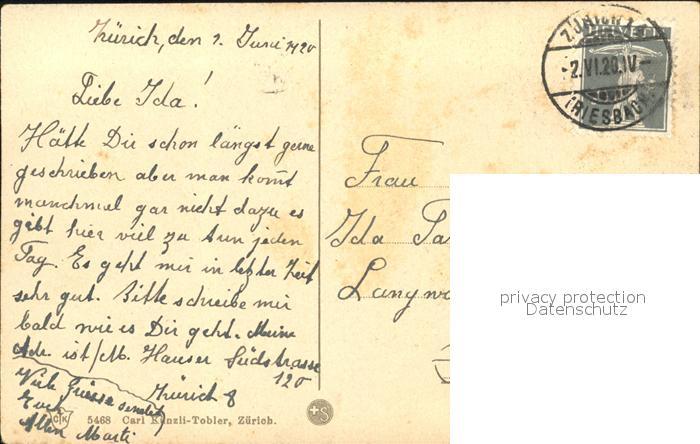 Zürich, den 2. Juni 1920
Liebe Ida!
Hätte Dir schon längst gerne
geschrieben aber man kommt
manchmal gar nicht dazu es
gibt hier viel zu tun jeden
Tag. Es geht mir in letzter Zeit
sehr gut. Bitte schreibe mir
bald wie es Dir geht. Meine
Adr. ist / M. Hauser Südstrasse
120
Zürich 8
Viele Grüsse sendet
Euch
Allen Marti
5468 Carl Künzli-Tobler, Zürich.
+S
ZÜRICH
HELVETIA
-2.VI.20.IV-
(RIESBACH)
Frau
Ida
privacy protection
Datenschutz